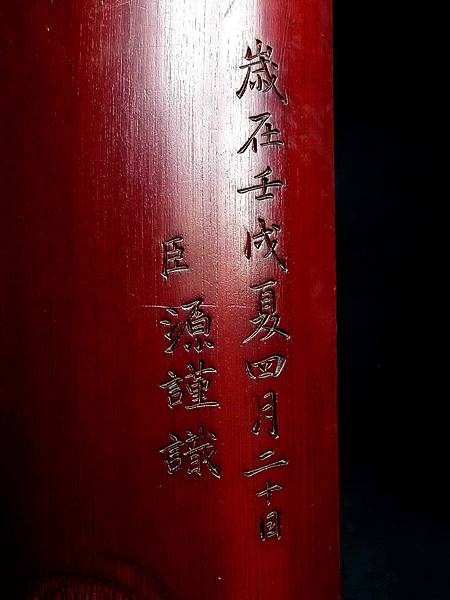 歲在壬戌夏四月二十日
臣源謹識